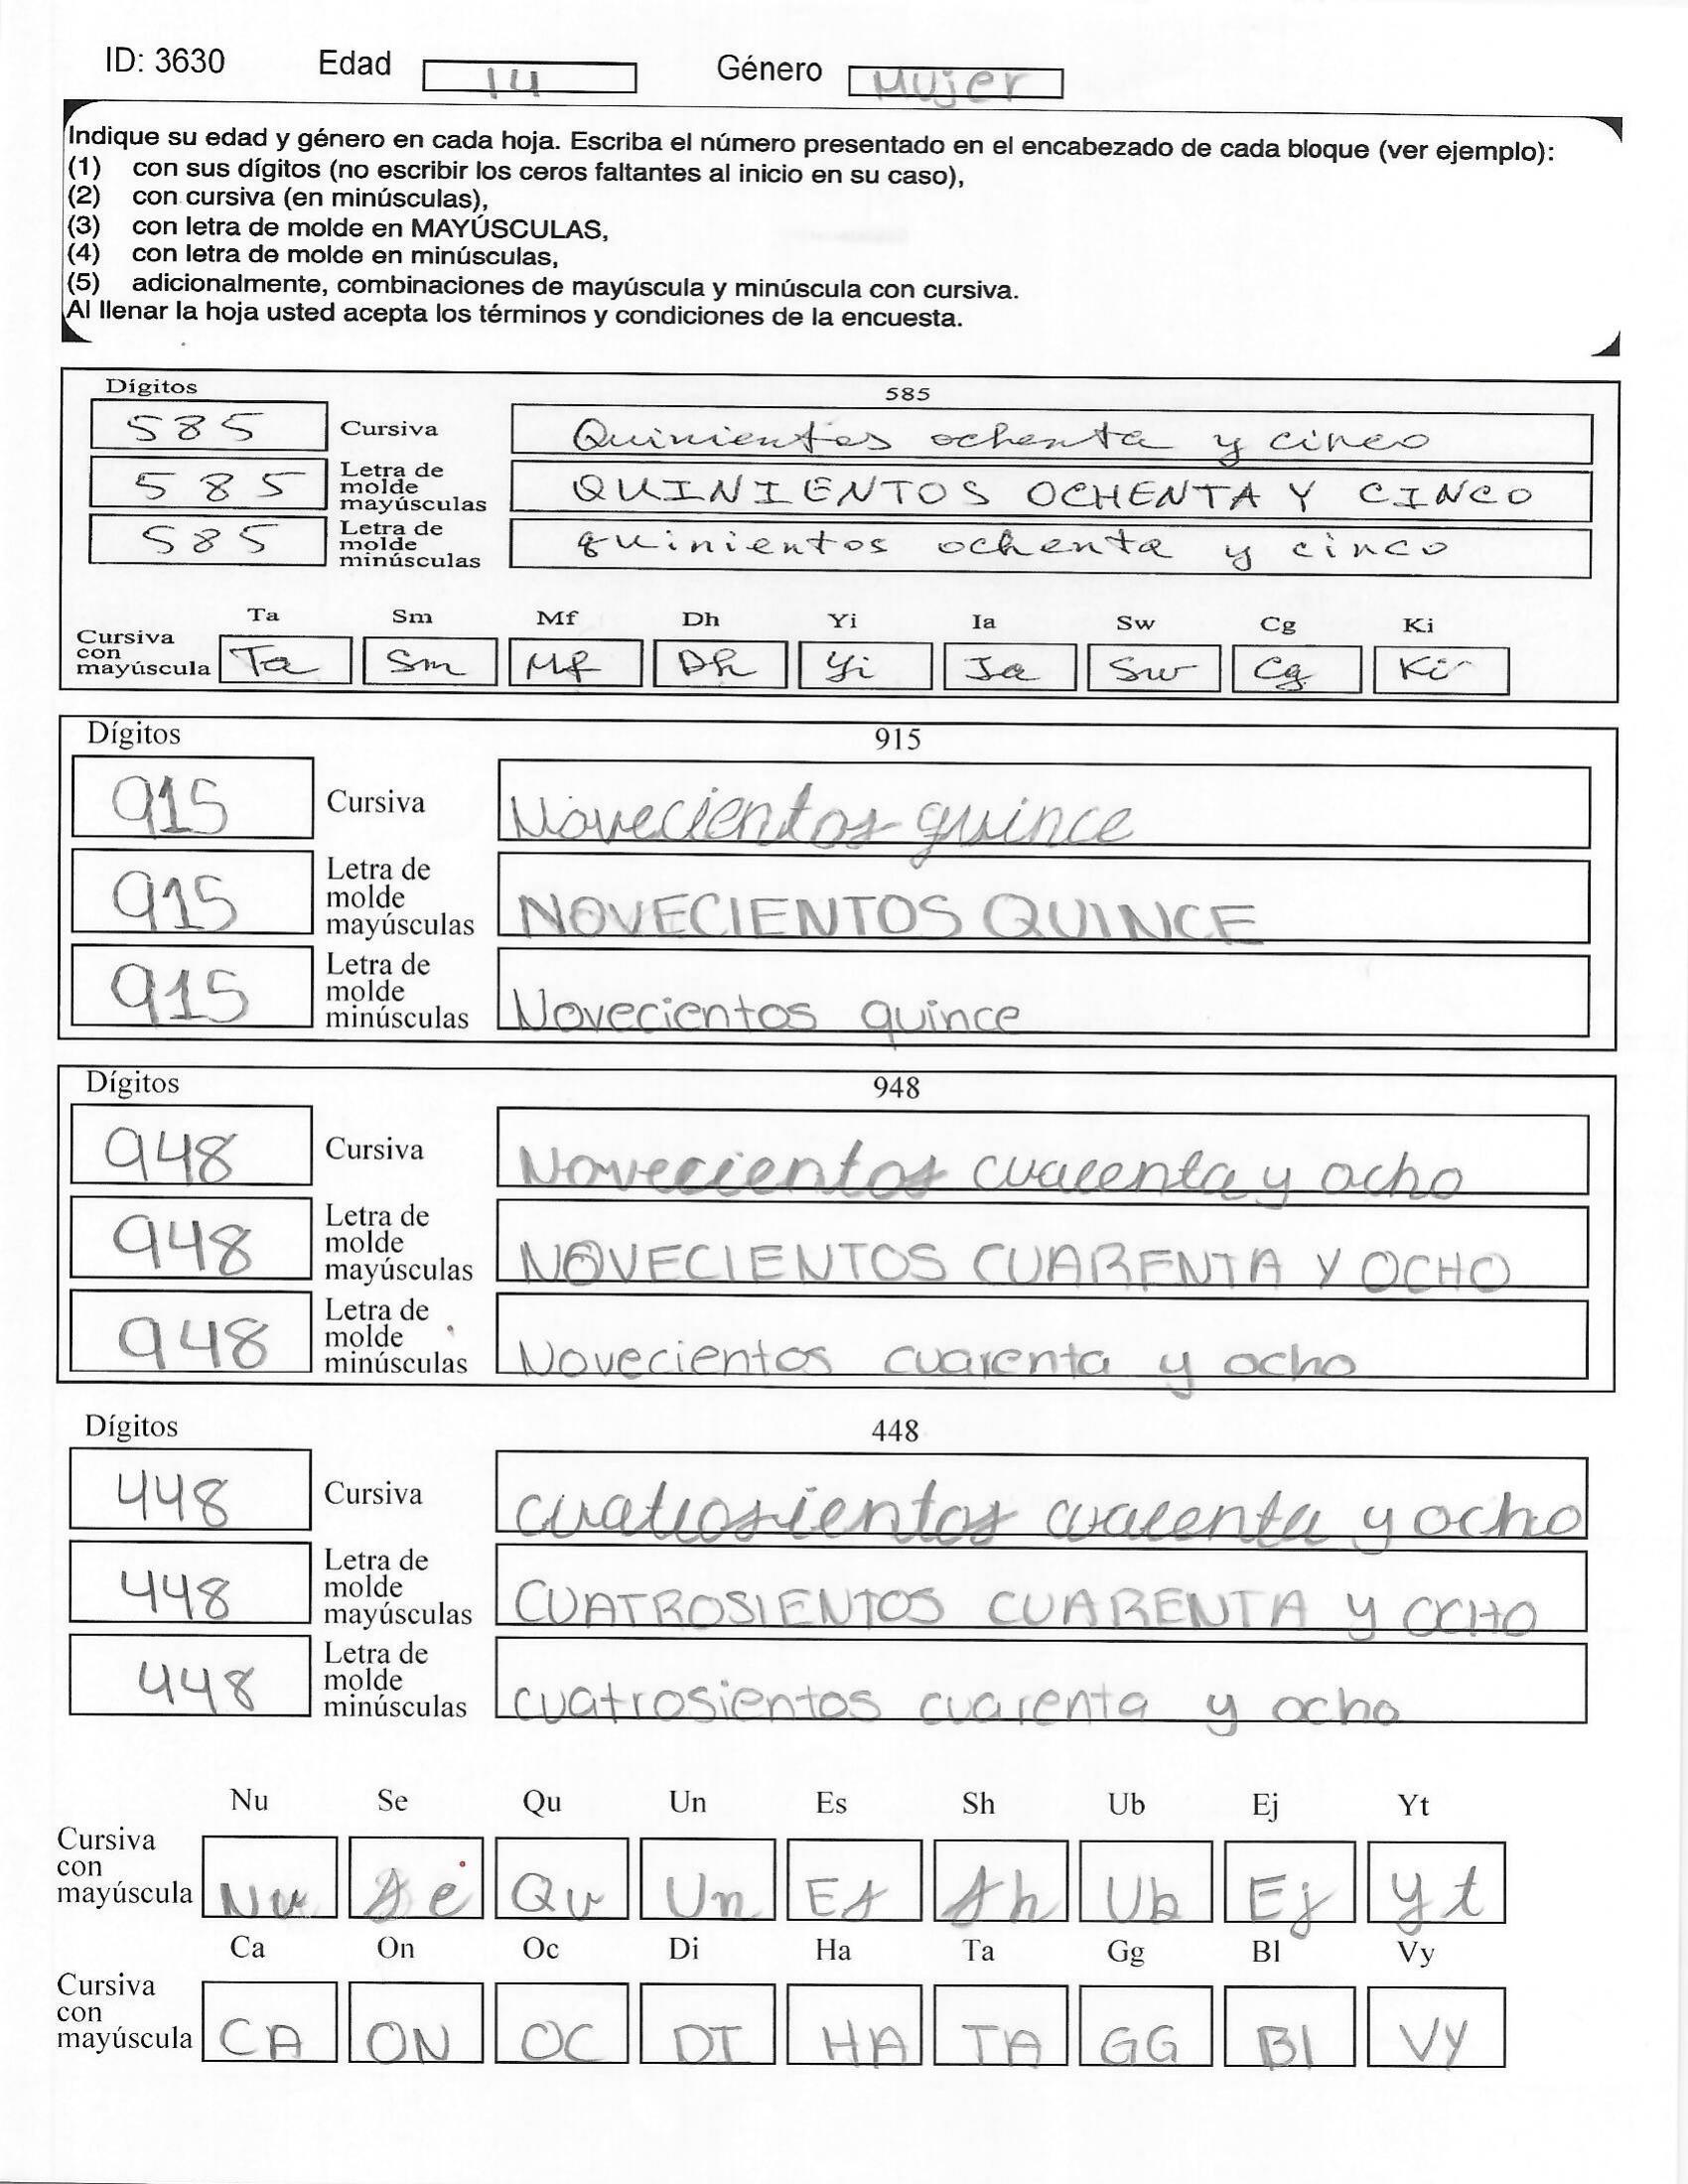 ID: 3630 Edad 14 Género Mujer
Indique su edad y género en cada hoja. Escriba el número presentado en el encabezado de cada bloque (ver ejemplo):
(1) con sus dígitos (no escribir los ceros faltantes al inicio en su caso),
(2) con cursiva (en minúsculas),
(3) con letra de molde en MAYÚSCULAS,
(4) con letra de molde en minúsculas,
(5) adicionalmente, combinaciones de mayúscula y minúscula con cursiva.
Al llenar la hoja usted acepta los términos y condiciones de la encuesta.
Dígitos 585
585 Cursiva Quinientos ochenta y cinco
585 Letra de molde mayúsculas QUINIENTOS OCHENTA Y CINCO
585 Letra de molde minúsculas quinientos ochenta y cinco
Ta Sm Mf Dh Yi Ia Sw Cg Ki
Cursiva con mayúscula Ta Sm Mf Dh Yi Ia Sw Cg Ki
Dígitos 915
915 Cursiva Novecientos quince
915 Letra de molde mayúsculas NOVECIENTOS QUINCE
915 Letra de molde minúsculas Novecientos quince
Dígitos 948
948 Cursiva Novecientos cuarenta y ocho
948 Letra de molde mayúsculas NOVECIENTOS CUARENTA Y OCHO
948 Letra de molde minúsculas Novecientos cuarenta y ocho
Dígitos 448
448 Cursiva cuatrosientos cuarenta y ocho
448 Letra de molde mayúsculas CUATROSIENTOS CUARENTA y OCHO
448 Letra de molde minúsculas cuatrosientos cuarenta y ocho
Nu Se Qu Un Es Sh Ub Ej Yt
Cursiva con mayúscula Nu Se Qu Un Es Sh Ub Ej Yt
Ca On Oc Di Ha Ta Gg Bl Vy
Cursiva con mayúscula CA ON OC DI HA TA GG Bl VY